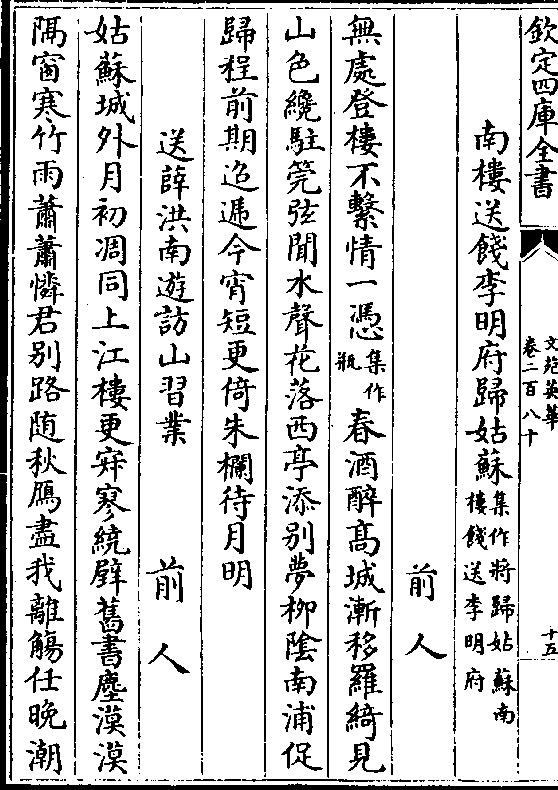 欽定四庫全書
文苑英華
卷二百八十
十五
南樓送餞李明府歸姑蘇集作將歸姑蘇南樓餞送李明府
前人
無處登樓不繫情一憑集作瓶春酒醉髙城漸移羅綺見
山色纔駐筦弦聞水聲花落西亭添别夢柳陰南浦促
歸程前期迢遞今宵短更倚朱欄待月明
送薛洪南遊訪山習業
前人
姑蘇城外月初凋同上江樓更寂寥繞壁舊書塵漠漠
隔窗寒竹雨蕭蕭憐君别路随秋鴈盡我離觴任晚潮